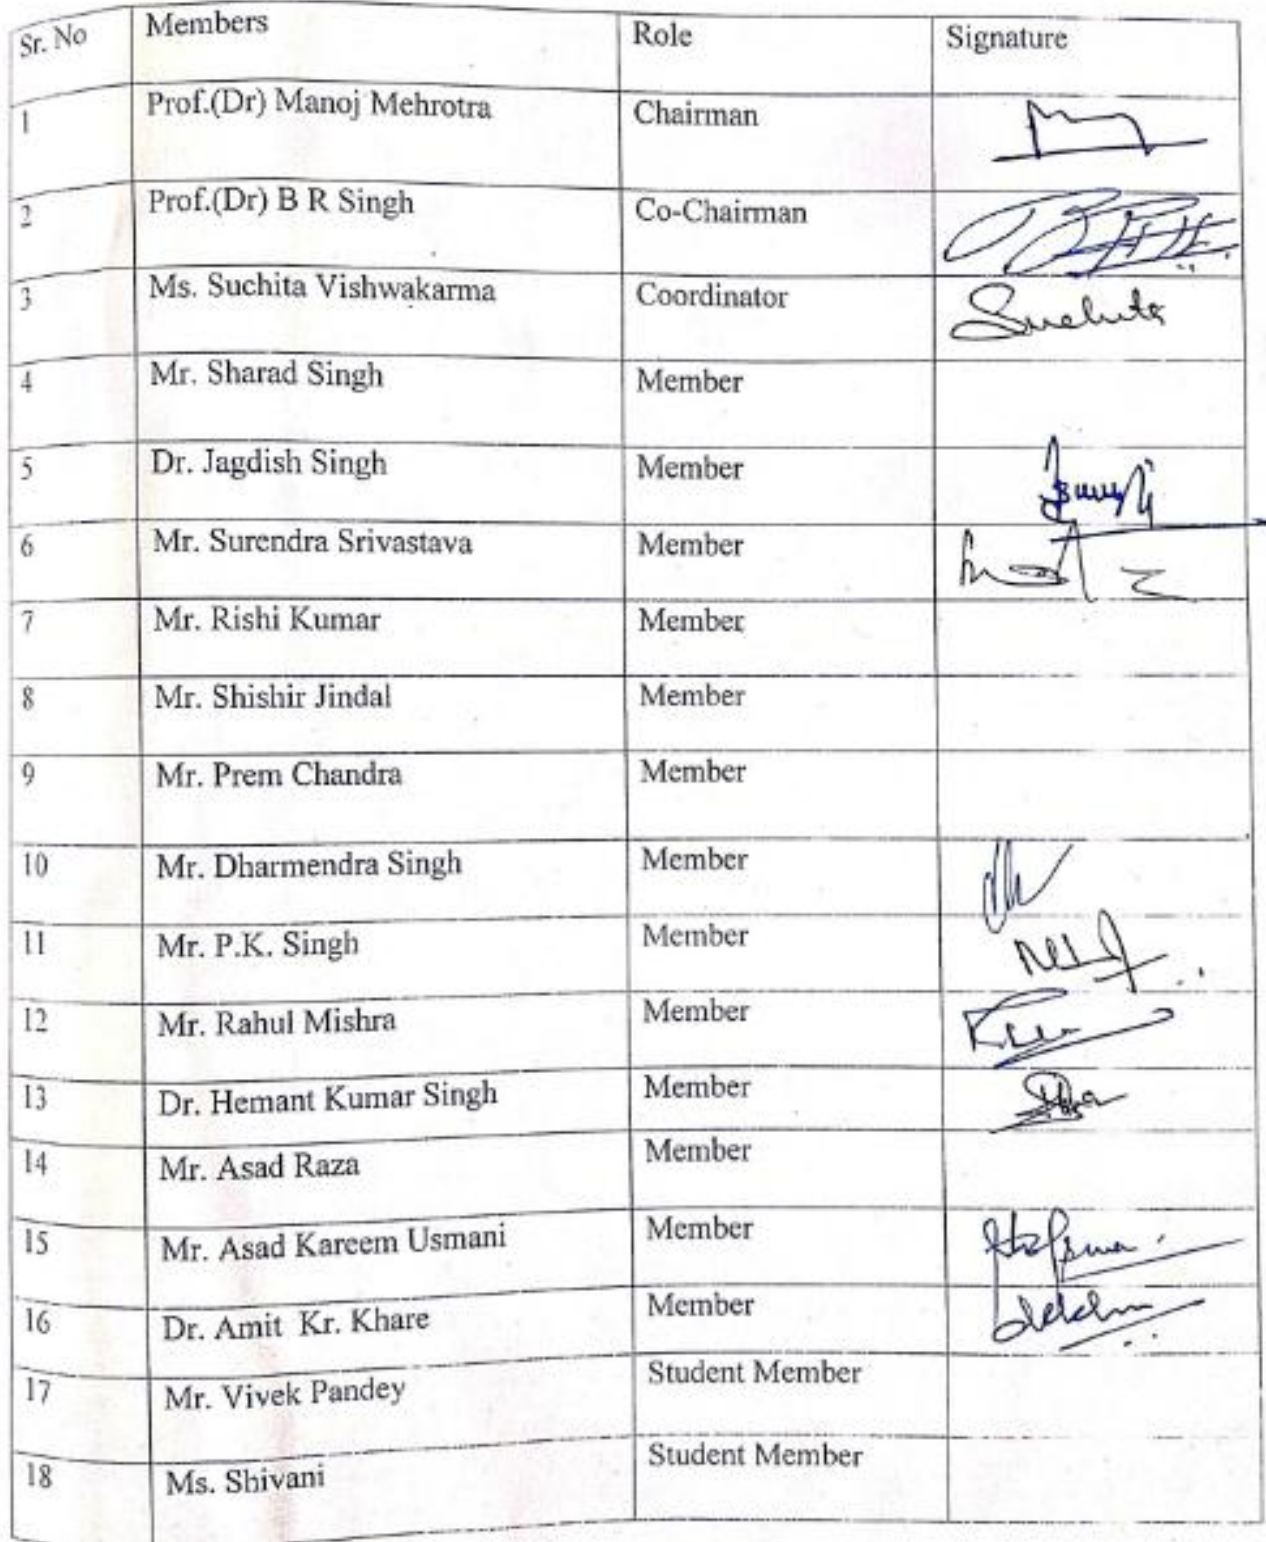 Sr. No Members Role Signature
1 Prof.(Dr) Manoj Mehrotra Chairman
2 Prof.(Dr) B R Singh Co-Chairman
3 Ms. Suchita Vishwakarma Coordinator Suchita
4 Mr. Sharad Singh Member
5 Dr. Jagdish Singh Member
6 Mr. Surendra Srivastava Member
7 Mr. Rishi Kumar Member
8 Mr. Shishir Jindal Member
9 Mr. Prem Chandra Member
10 Mr. Dharmendra Singh Member
11 Mr. P.K. Singh Member
12 Mr. Rahul Mishra Member
13 Dr. Hemant Kumar Singh Member
14 Mr. Asad Raza Member
15 Mr. Asad Kareem Usmani Member
16 Dr. Amit Kr. Khare Member
17 Mr. Vivek Pandey Student Member
18 Ms. Shivani Student Member